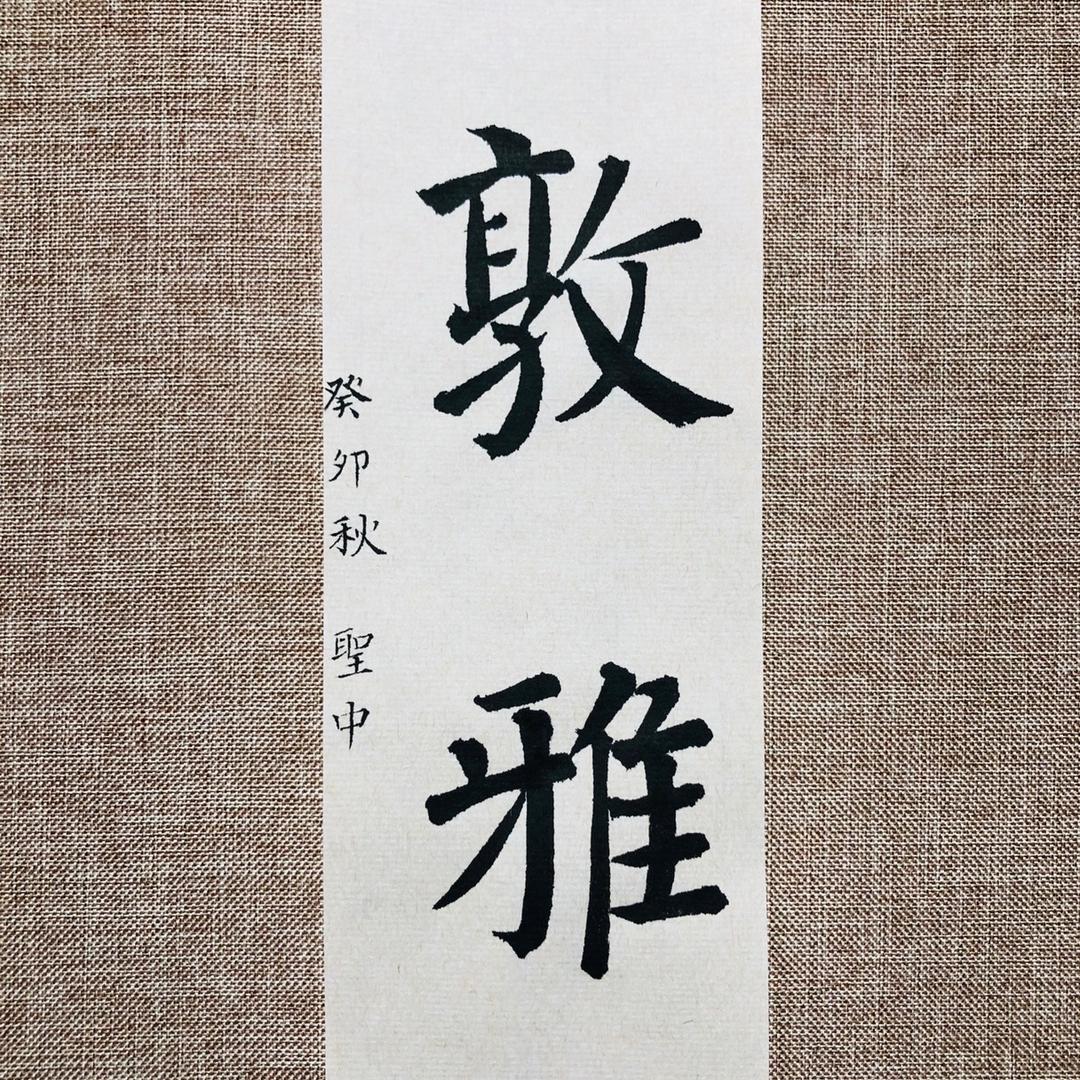 敦雅
癸卯秋 聖中